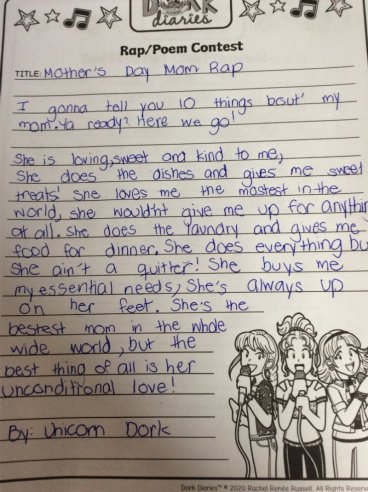 DORK
diaries
Rap/Poem Contest
TITLE: Mother's Day Mom Rap
I gonna tell you 10 things bout' my
mom. Ya ready? Here we go!
She is loving, sweet and kind to me,
She does the dishes and gives me sweet
treats! She loves me the mostest in the
world, she wouldn't give me up for anythin
at all. She does the laundry and gives me
food for dinner. She does everything bu
She ain't a quitter! She buys me
my essential needs, She's always up
on her feet. She's the
bestest mom in the whole
wide world, but the
best thing of all is her
unconditional love!
By: Unicorn Dork
Dork Diaries™ © 2020 Rachel Renée Russell. All Rights Reserve